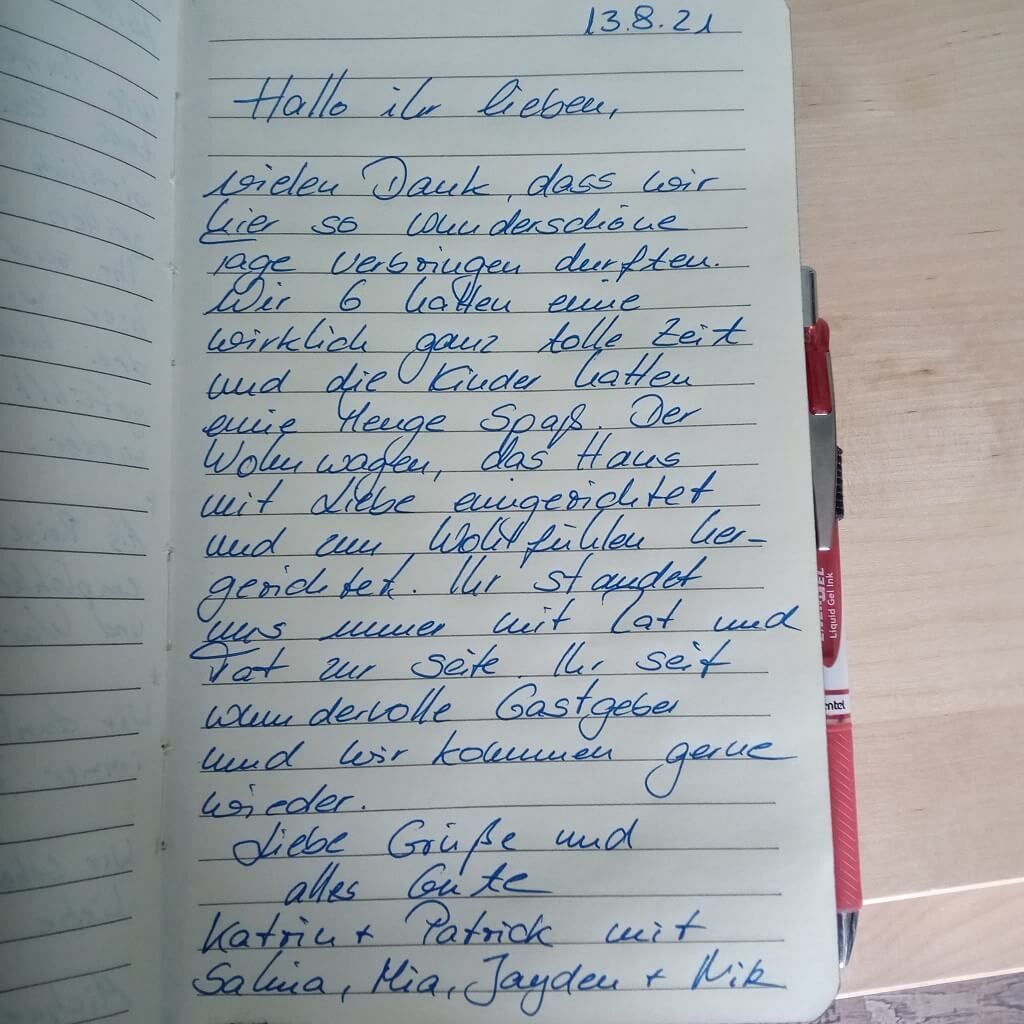 13.8.21
Hallo ihr lieben,
vielen Dank, dass wir
hier so wunderschöne
Tage verbringen durften.
Wir 6 hatten eine
wirklich ganz tolle Zeit
und die Kinder hatten
eine Menge Spaß. Der
Wohnwagen, das Haus
mit Liebe eingerichtet
und zum Wohlfühlen her-
gerichtet. Ihr standet
uns immer mit Rat und
Tat zur Seite. Ihr seit
wundervolle Gastgeber
und wir kommen gerne
wieder.
Liebe Grüße und
alles Gute
Katrin + Patrick mit
Salina, Mia, Jayden + Nik
Liquid Gel Ink